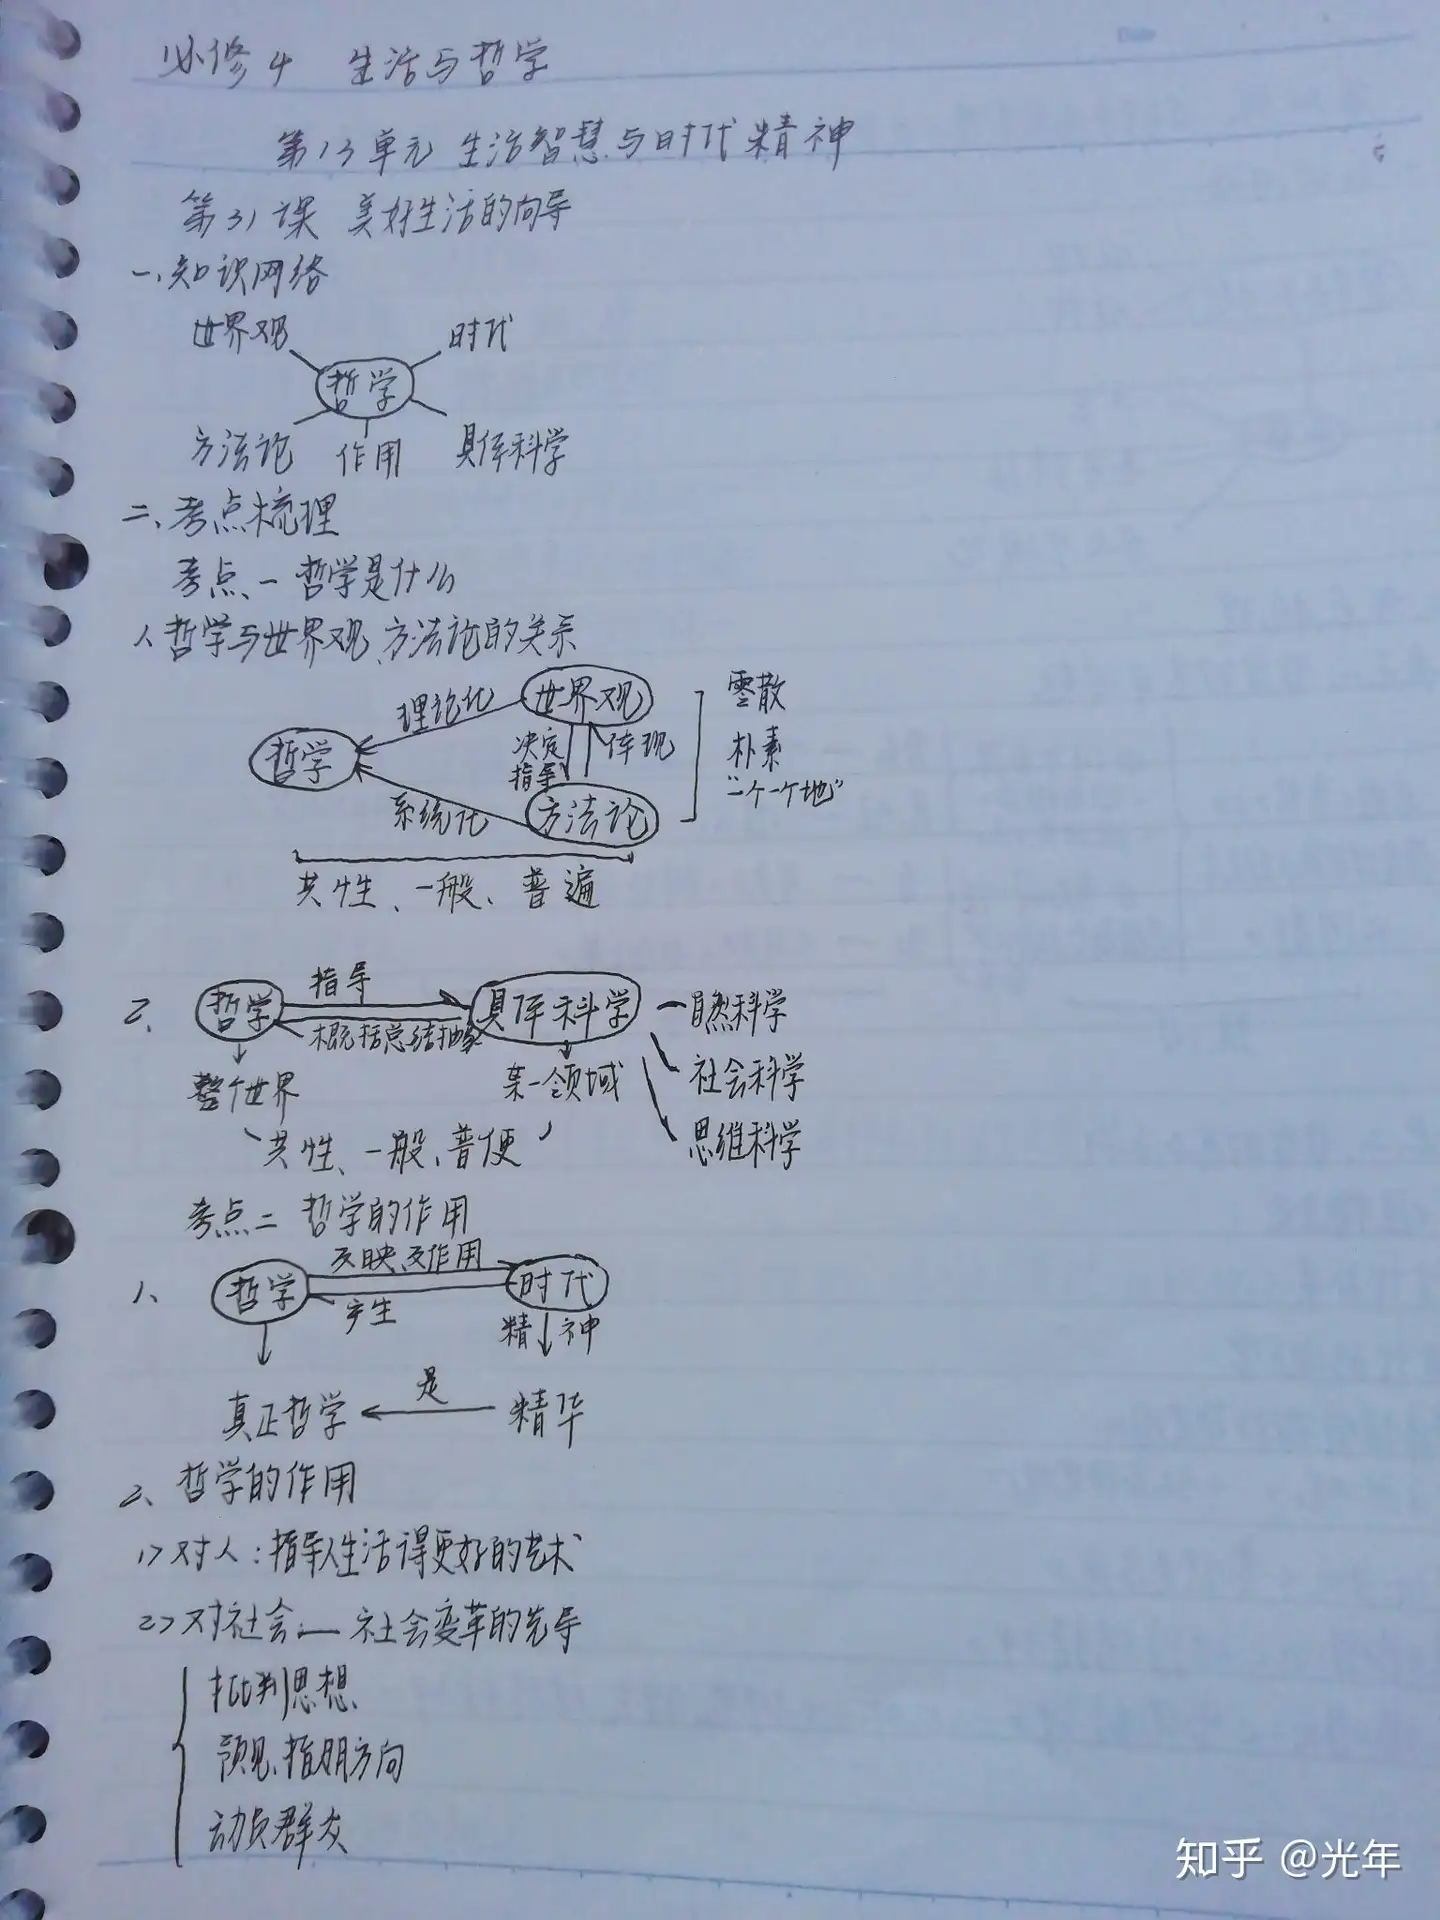 必修4 生活与哲学
第13单元 生活智慧与时代精神
第31课 美好生活的向导
一、知识网络
世界观 时代
哲学
方法论 作用 具体科学
二、考点梳理
考点一 哲学是什么
1、哲学与世界观、方法论的关系
理论化 世界观 零散
哲学 决定 指导 体现 朴素
系统化 方法论 "一个一个地"
共性、一般、普遍
2、 哲学 指导 具体科学 自然科学
概括总结抽象
整个世界 某一领域 社会科学
共性、一般、普便 思维科学
考点二 哲学的作用
反映、反作用
1、 哲学 时代
产生 精神
真正哲学 是 精华
2、哲学的作用
1>对人：指导人生活得更好的艺术
2>对社会:— 社会变革的先导
批判思想
预见、指明方向
动员群众
知乎 @光年